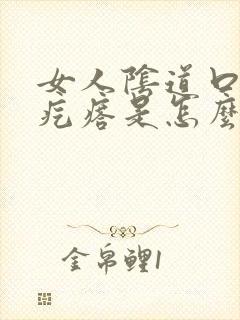 女人陰道口
疙瘩是怎麼
金帛鯉1